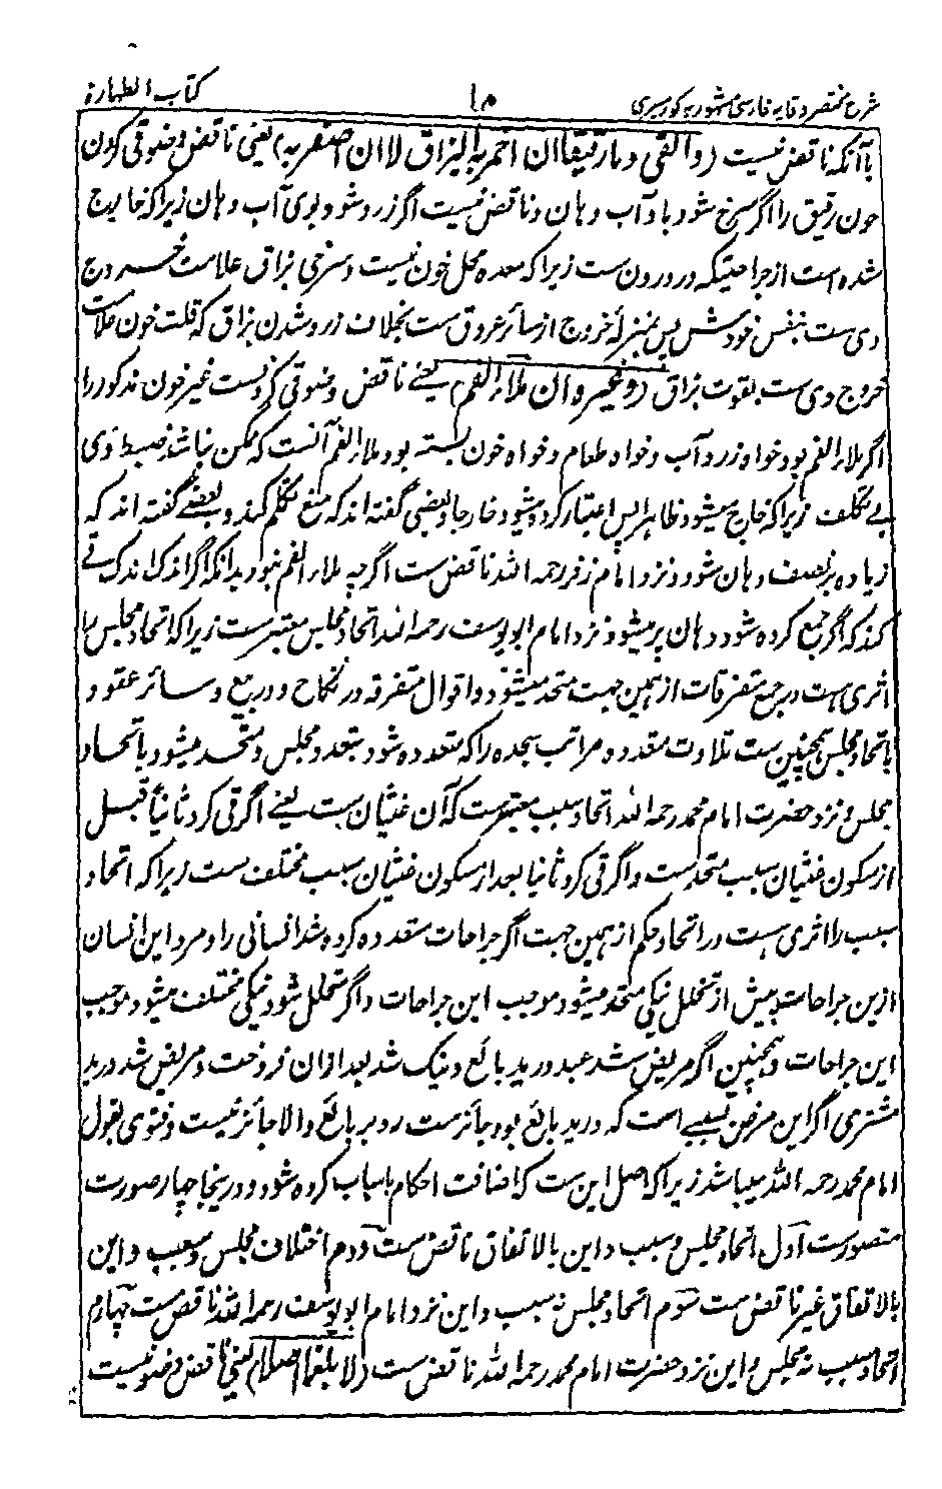 شرح مختصر وقایه فارسی مشهور به کور میری
۱۵
کتاب الطهارة
باآنکه ناقض نیست (والقی دما رقیقا ان احمر به البزاق لا ان اصفر به) یعنی ناقض وضو قی کردن
خون رقیق را اگر سرخ شود باو آب دهان و ناقض نیست اگر زرد شود بوی آب دهان زیرا که خارج
شده است از جراحتیکه در درون ست زیرا که معده محل خون نیست و سرخی بزاق علامت خروج
وی ست بنفس خودش پس بمنزلهٔ خروج از سائر عروق ست بخلاف زرد شدن بزاق که قلت خون علامت
خروج وی ست بقوت بزاق (و غیره ان ملاء الفم) یعنے ناقض وضو قی کردنست غیر خون مذکور را
اگر ملاء الفم بود خواه زرد آب و خواه طعام و خواه خون بسته بود ملاء الفم آنست که ممکن نباشد ضبط وی
بے تکلف زیرا که خارج میشود ظاهرا پس اعتبار کرده میشود خارجا و بعضی گفته اند که منع تکلم کند و بعضے گفته اند که
زیاده بر نصف دهان شود و نزد امام زفر رحمه الله ناقض ست اگرچه ملاء الفم نبود بدانکه اگر اندک اندک قے
کند که اگر جمع کرده شود دهان پر میشود نزد امام ابو یوسف رحمه الله اتحاد مجلس معتبر ست زیرا که اتحاد مجلس را
اثری هست در جمع متفرقات از همین جهت متحد میشود اقوال متفرقه در نکاح و در بیع و سائر عقود
باتحاد مجلس همچنین ست تلاوت متعدده مراتب سجده را که متعدده شود بتعدد مجلس و متحد میشود باتحاد
مجلس و نزد حضرت امام محمد رحمه الله اتحاد سبب معتبر ست که آن غثیان ست یعنے اگر قی کرد ثانیاً قبل
از سکون غثیان سبب متحد ست و اگر قی کرد ثانیا بعد از سکون غثیان سبب مختلف ست زیرا که اتحاد
سبب را اثری هست در اتحاد حکم از همین جهت اگر جراحات متعدده کرده شد انسانی را و مرد این انسان
ازین جراحات پیش از تخلل نیکی متحد میشود موجب این جراحات و اگر متخلل شود نیکی مختلف میشود موجب
این جراحات و همچنین اگر مریض شد عبد در ید بائع و نیک شد بعد ازان فروخت و مریض شد در ید
مشتری اگر این مرض بسببے است که در ید بائع بود جائز ست رد بر بائع والا جائز نیست و فتوی بقول
امام محمد رحمه الله میباشد زیرا که اصل این ست که اضافت احکام باسباب کرده شود و درینجا چهار صورت
متصور ست اول اتحاد مجلس و سبب و این بالاتفاق ناقض ست دوم اختلاف مجلس و سبب و این
بالاتفاق غیر ناقض ست سوم اتحاد مجلس نه سبب و این نزد امام ابو یوسف رحمه الله ناقض ست چهارم
اتحاد سبب نه مجلس و این نزد حضرت امام محمد رحمه الله ناقض ست (لا بلغما اصلا) یعنی ناقض وضو نیست